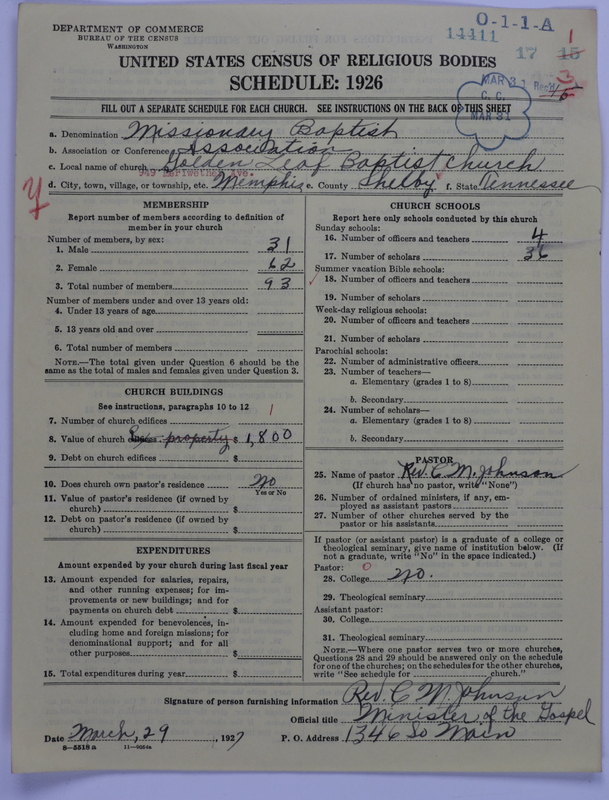 DEPARTMENT OF COMMERCE
BUREAU OF THE CENSUS
WASHINGTON
O-1-1-A
14411
17 15 1
3
MAR 31 Rec'd
C. C.
MAR 31
UNITED STATES CENSUS OF RELIGIOUS BODIES
SCHEDULE: 1926
FILL OUT A SEPARATE SCHEDULE FOR EACH CHURCH. SEE INSTRUCTIONS ON THE BACK OF THIS SHEET
a. Denomination Missionary Baptist
b. Association or Conference Association
c. Local name of church Golden Leaf Baptist Church
949 Meriwether Ave.
d. City, town, village, or township, etc. Memphis e. County Shelby f. State Tennessee
MEMBERSHIP
Report number of members according to definition of
member in your church
Number of members, by sex:
1. Male 31
2. Female 62
3. Total number of members 93
Number of members under and over 13 years old:
4. Under 13 years of age
5. 13 years old and over
6. Total number of members
NOTE.—The total given under Question 6 should be the
same as the total of males and females given under Question 3.
CHURCH BUILDINGS
See instructions, paragraphs 10 to 12
7. Number of church edifices 1
8. Value of church property $ 1,800
9. Debt on church edifices $
10. Does church own pastor's residence No
Yes or No
11. Value of pastor's residence (if owned by
church) $
12. Debt on pastor's residence (if owned by
church) $
EXPENDITURES
Amount expended by your church during last fiscal year
13. Amount expended for salaries, repairs,
and other running expenses; for im-
provements or new buildings; and for
payments on church debt $
14. Amount expended for benevolences, in-
cluding home and foreign missions; for
denominational support; and for all
other purposes $
15. Total expenditures during year $
CHURCH SCHOOLS
Report here only schools conducted by this church
Sunday schools:
16. Number of officers and teachers 4
17. Number of scholars 36
Summer vacation Bible schools:
18. Number of officers and teachers
19. Number of scholars
Week-day religious schools:
20. Number of officers and teachers
21. Number of scholars
Parochial schools:
22. Number of administrative officers
23. Number of teachers—
a. Elementary (grades 1 to 8)
b. Secondary
24. Number of scholars—
a. Elementary (grades 1 to 8)
b. Secondary
PASTOR
25. Name of pastor Rev. C. M. Johnson
(If church has no pastor, write "None")
26. Number of ordained ministers, if any, em-
ployed as assistant pastors
27. Number of other churches served by the
pastor or his assistants
If pastor (or assistant pastor) is a graduate of a college or
theological seminary, give name of institution below. (If
not a graduate, write "No" in the space indicated.)
Pastor: 0
28. College No.
29. Theological seminary
Assistant pastor:
30. College
31. Theological seminary
NOTE.—Where one pastor serves two or more churches,
Questions 28 and 29 should be answered only on the schedule
for one of the churches; on the schedules for the other churches,
write "See schedule for church."
Signature of person furnishing information Rev. C M. Johnson
Official title Minister of the Gospel
Date March, 29, 1927 P. O. Address 1346 So Main
8-5518 a 11-9684a